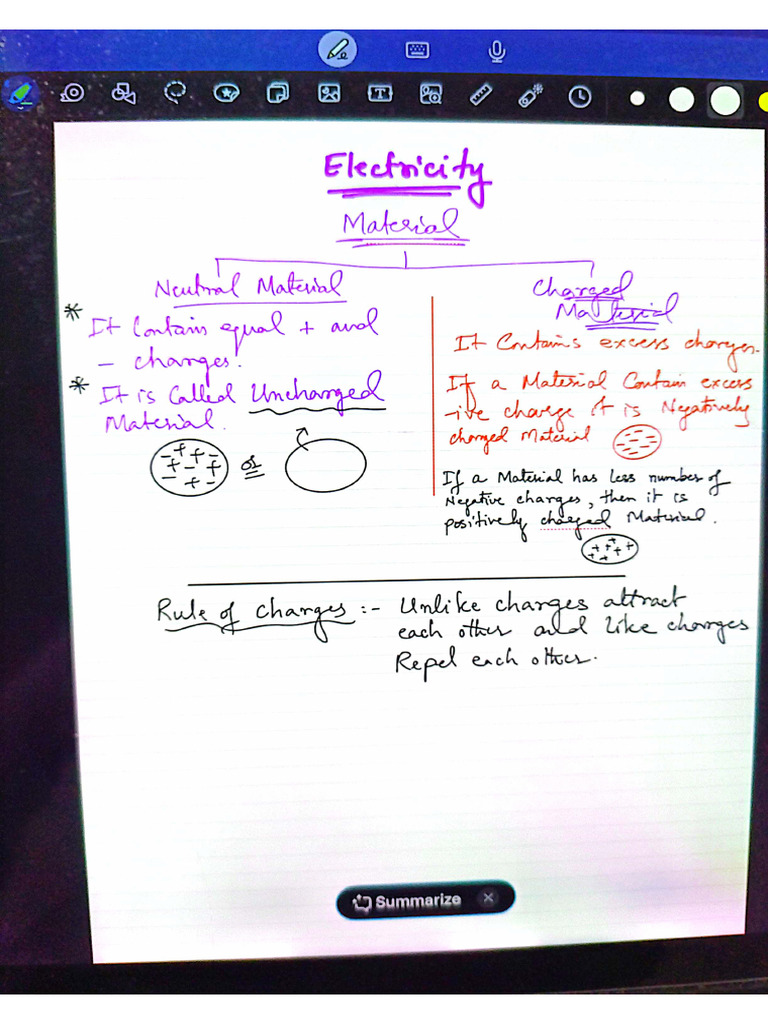 Electricity
Material
Neutral Material
* It Contains equal + and
- charges.
* It is Called Uncharged
Material.
or
Charged
Material
It Contains excess charges.
If a Material Contain excess
-ive charge it is Negatively
charged Material
If a Material has less number of
Negative charges, then it is
positively charged Material.
Rule of Charges :- Unlike charges attract
each other and like charges
Repel each other.
Summarize